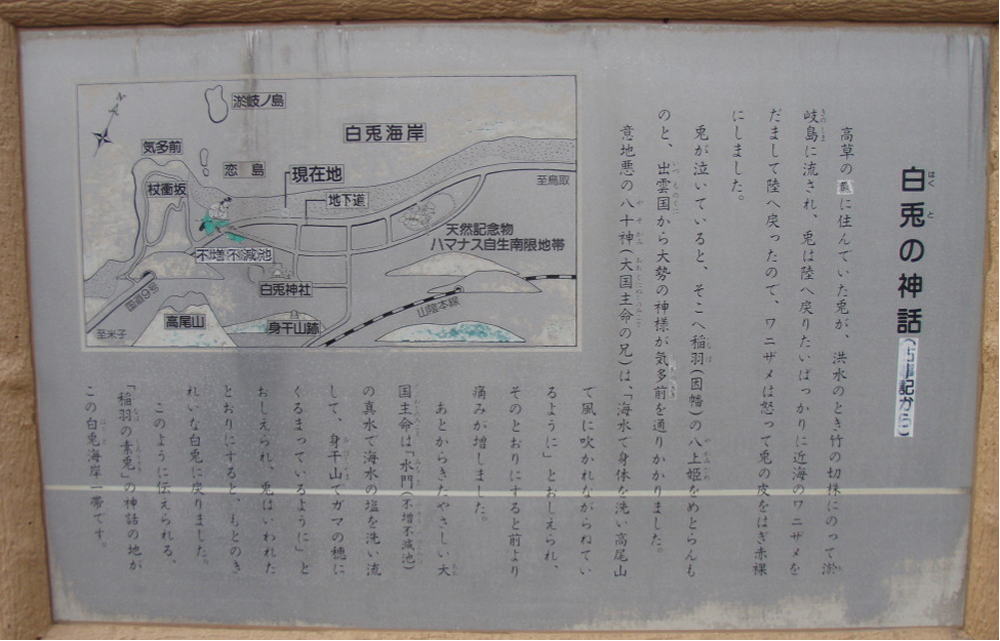 白兎の神話(古事記から)
はく と
高草の に住んでいた兎が、洪水のとき竹の切株にのって淤
岐島に流され、兎は陸へ戻りたいばっかりに近海のワニザメを
だまして陸へ戻ったので、ワニザメは怒って兎の皮をはぎ赤裸
にしました。
兎が泣いていると、そこへ稲羽(因幡)の八上姫をめとらんも
のと、出雲国から大勢の神様が気多前を通りかかりました。
意地悪の八十神(大国主命の兄)は、「海水で身体を洗い高尾山
て風に吹かれながらねてい
るように」とおしえられ、
そのとおりにすると前より
痛みが増しました。
あとからきたやさしい大
国主命は「水門(不増不減池)
の真水で海水の塩を洗い流
して、身干山でガマの穂に
くるまっているように」と
おしえられ、兎はいわれた
とおりにすると、もとのき
れいな白兎に戻りました。
このように伝えられる、
「稲羽の素兎」の神話の地が
この白兎海岸一帯です。
N
淤岐ノ島
白兎海岸
気多前
恋島
現在地
至鳥取
杖衝坂
地下道
天然記念物
ハマナス自生南限地帯
不増不減池
白兎神社
国道9号
山陰本線
高尾山
身干山跡
至米子